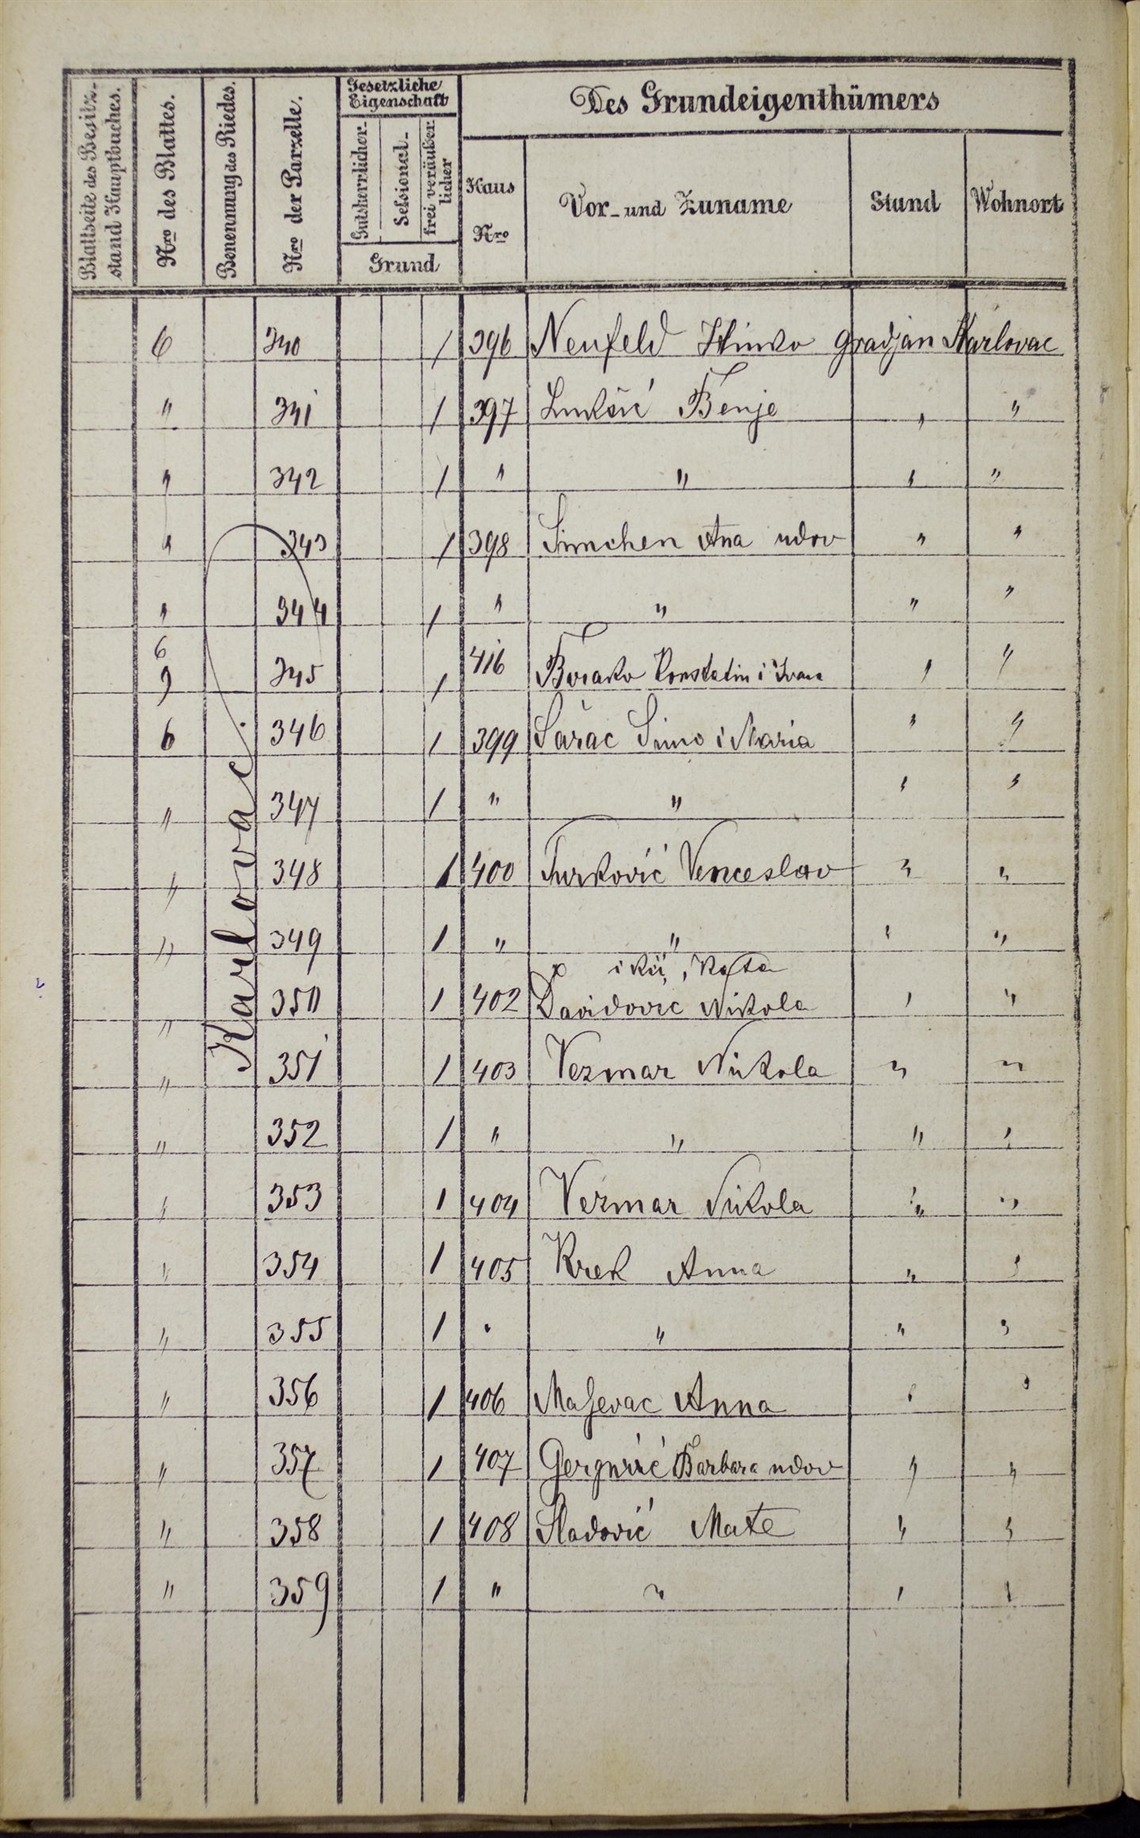 Blattseite des Besitz-stand Hauptbuches.
Nro des Blattes.
Benennung des Riedes.
Nro der Parzelle.
Gesetzliche Eigenschaft
Gutsherrlicher-
Sessional-
frei veräußerlicher
Grund
Des Grundeigenthümers
Haus Nro
Vor- und Zuname
Stand
Wohnort
Karlovac.
6 340 1 396 Neufeld Hinko gradjan Karlovac
" 341 1 397 Lukšić Benje " "
" 342 1 " " " "
" 343 1 398 Simchen Ana udov " "
" 344 1 " " " "
6
9 345 1 416 Konstatin i Ivana " "
6 346 1 399 Šarac Simo i Maria " "
" 347 1 " " " "
" 348 1 400 Turković Venceslav " "
" 349 1 " " " "
i kći, Kata
" 350 1 402 Davidović Nikola " "
" 351 1 403 Vezmar Nikola " "
" 352 1 " " " "
" 353 1 404 Vezmar Nikola " "
" 354 1 405 Krek Anna " "
" 355 1 " " " "
" 356 1 406 Anna " "
" 357 1 407 Barbara udov " "
" 358 1 408 Sladović Mate " "
" 359 1 " " " "